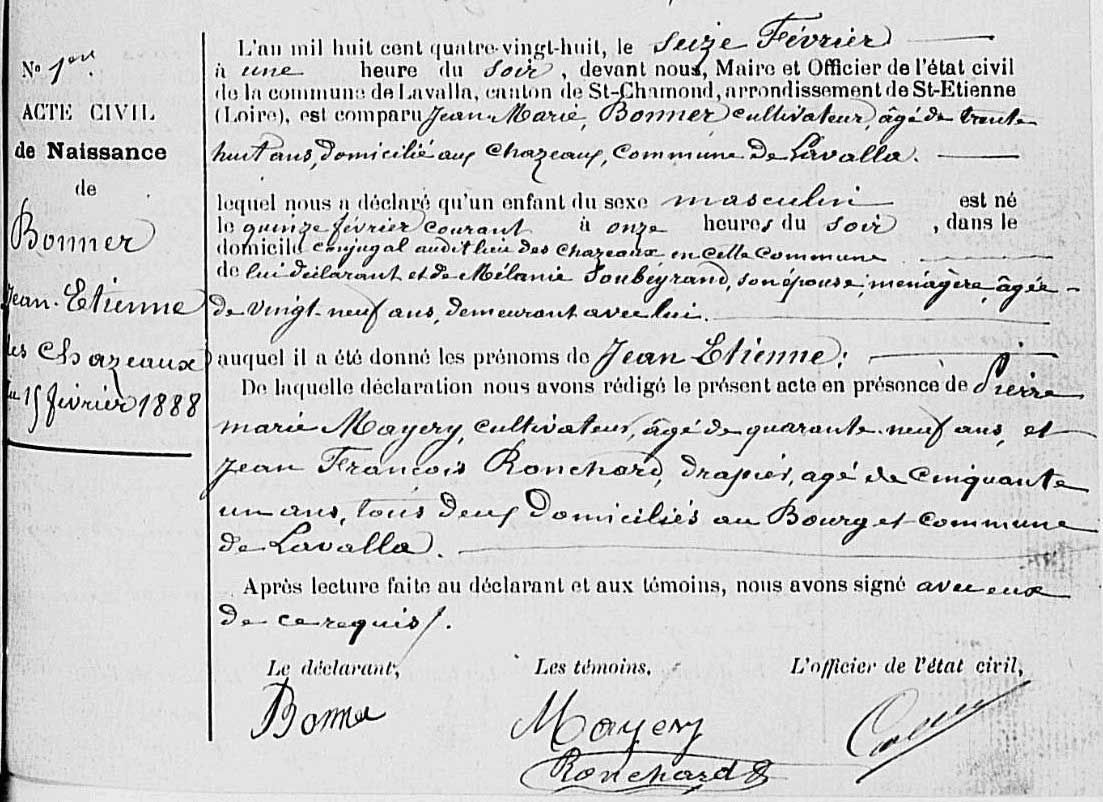 No 1er
ACTE CIVIL
de Naissance
de
Bonner
Jean-Etienne
des Chazeaux
du 15 février 1888
L'an mil huit cent quatre-vingt-huit, le seize Février
à une heure du soir, devant nous, Maire et Officier de l'état civil
de la commune de Lavalla, canton de St-Chamond, arrondissement de St-Etienne
(Loire), est comparu Jean-Marie, Bonner cultivateur, âgé de trente
huit ans, domicilié aux Chazeaux, commune de Lavalla.
lequel nous a déclaré qu'un enfant du sexe masculin est né
le quinze février courant à onze heures du soir, dans le
domicile conjugal audit lieu des Chazeaux en cette commune
de lui déclarant et de Mélanie Soubeyrand, son épouse, ménagère, âgée
de vingt-neuf ans, demeurant avec lui.
auquel il a été donné les prénoms de Jean Etienne;
De laquelle déclaration nous avons rédigé le présent acte en présence de Pierre
marie Mayery, cultivateur, âgé de quarante-neuf ans, et
Jean François Ronchard, drapier, agé de cinquante
un ans, tous deux domiciliés au Bourg et commune
de Lavalla.
Après lecture faite au déclarant et aux témoins, nous avons signé avec eux
de ce requis.
Le déclarant, Les témoins. L'officier de l'état civil,
Bonner Mayery
Ronchard